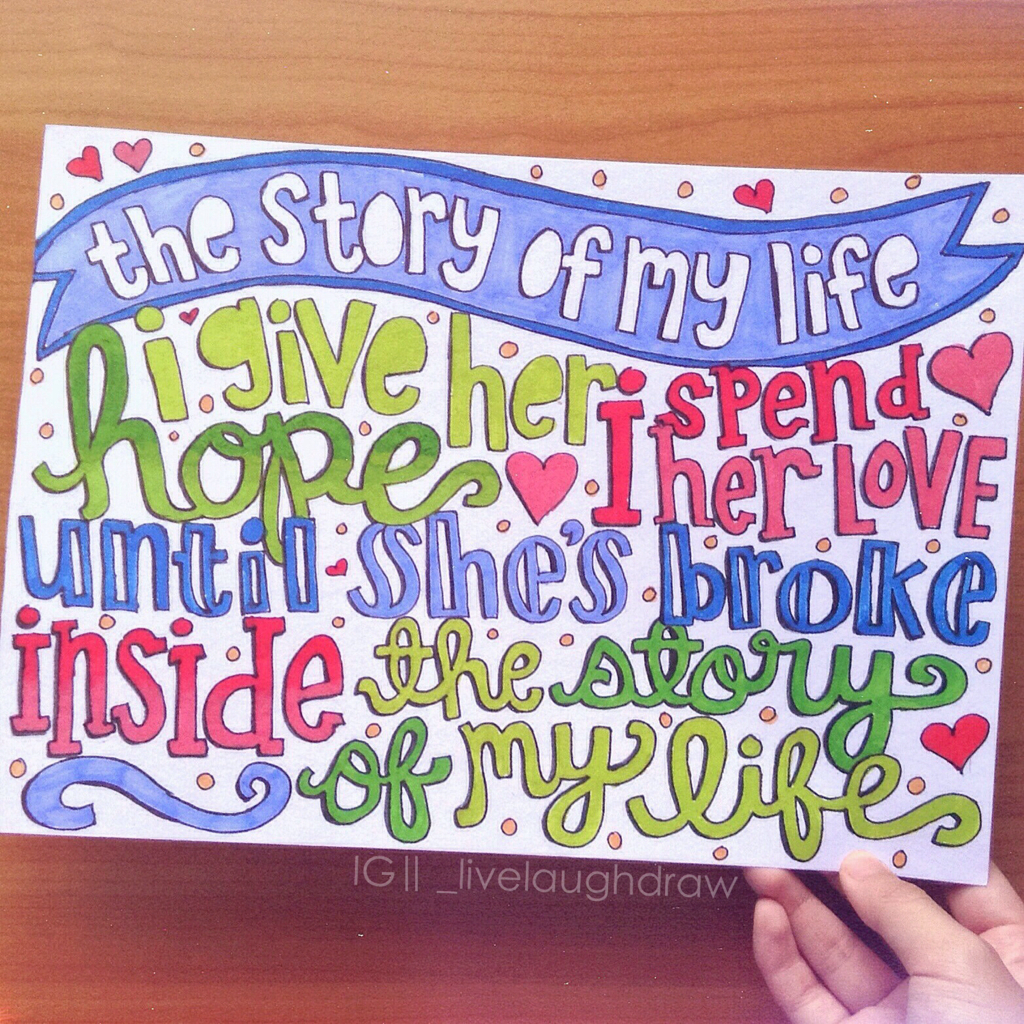 the story of my life
i give her
hope
i spend
her LOVE
until she's broke
inside the story
of my life
IG|| _livelaughdraw